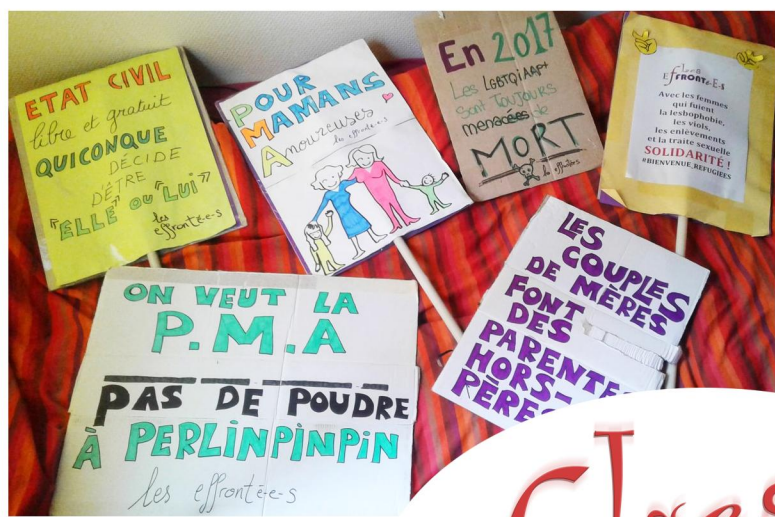 ETAT CIVIL
libre et gratuit
QUICONQUE
DÉCIDE
D'ÊTRE
"ELLE" OU "LUI"
les
effronté-e-s
POUR
MAMANS
Amoureuses
les effronté-e-s
En 2017
Les LGBTQIAAP+
sont TOUJOURS
menacées de
MORT
les effronté-e-s
Les
EFFRONTé-E-S
Avec les femmes
qui fuient
la lesbophobie,
les viols,
les enlèvements
et la traite sexuelle
SOLIDARITÉ !
#BIENVENUE_REFUGIEES
ON VEUT LA
P.M.A
PAS DE POUDRE
À PERLINPINPIN
les effronté-e-s
LES
COUPLES
DE MÈRES
FONT
DES
PARENTS
HORS-
PÈRES